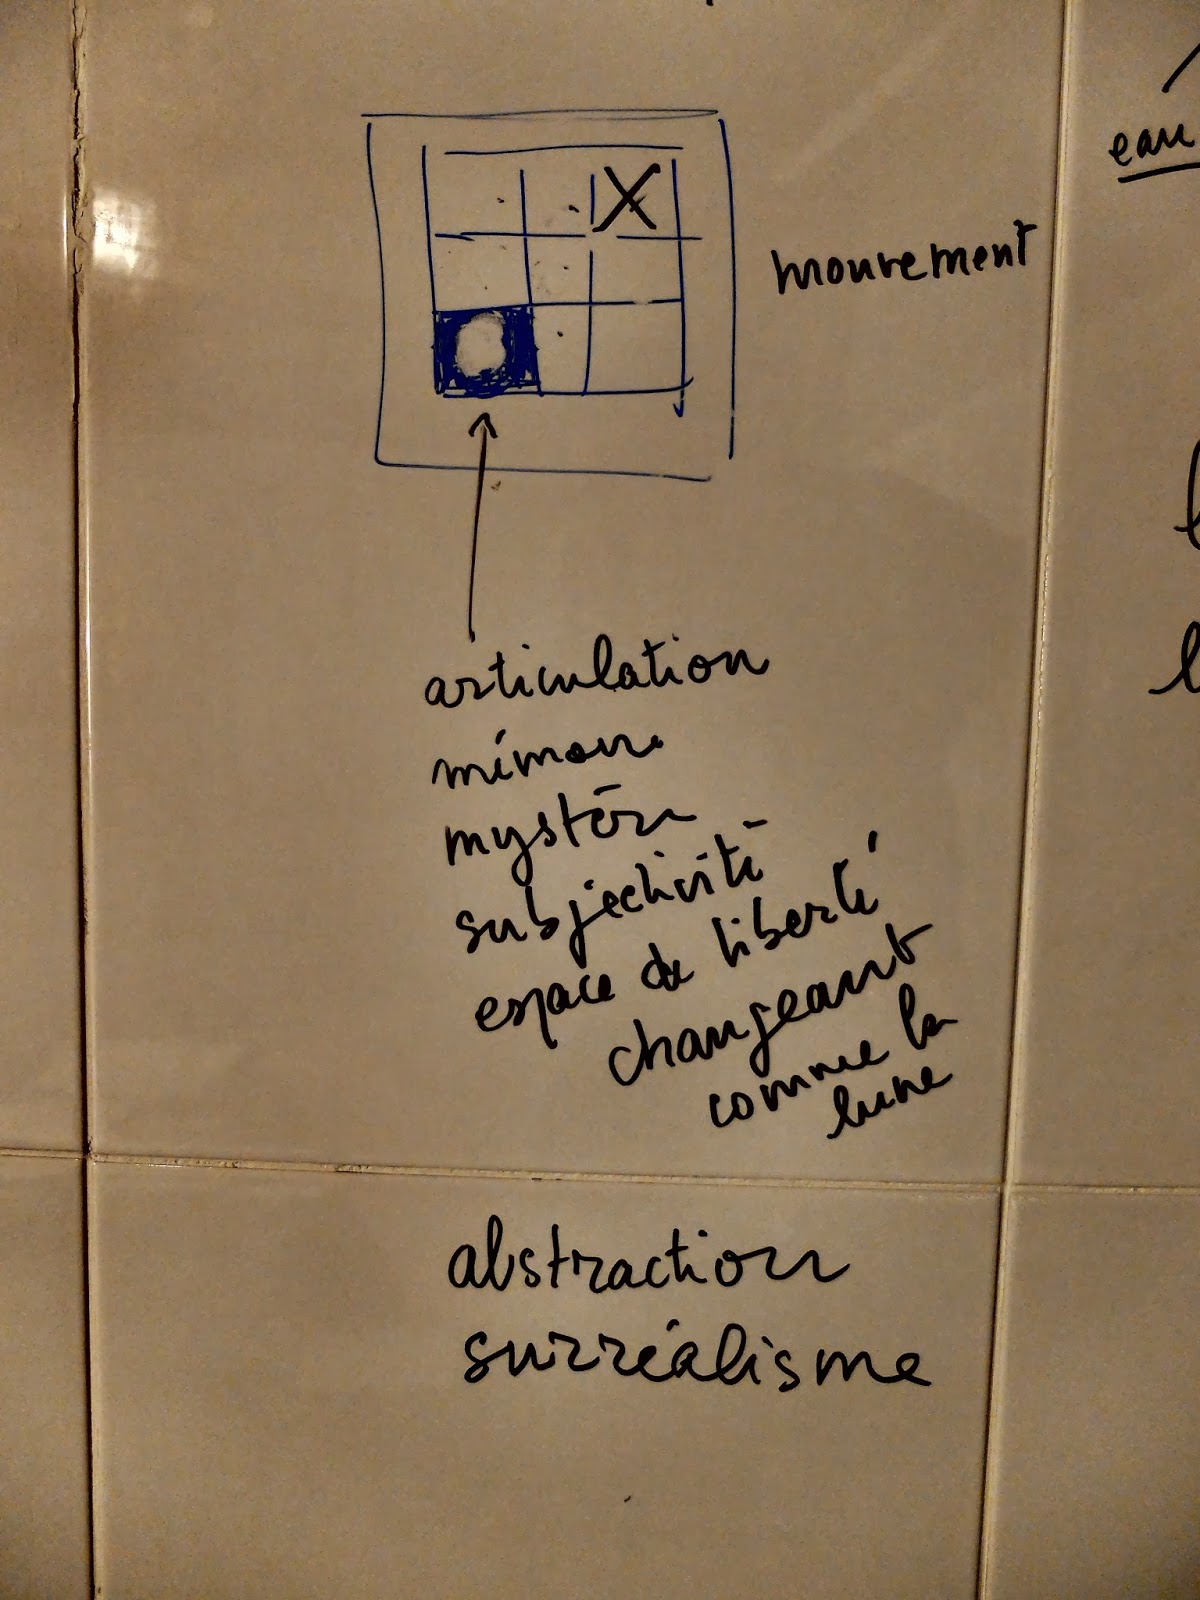 X
eau
mouvement
articulation
mémoire
mystère
subjectivité
espace de liberté
changeant
comme la
lune
abstraction
surréalisme